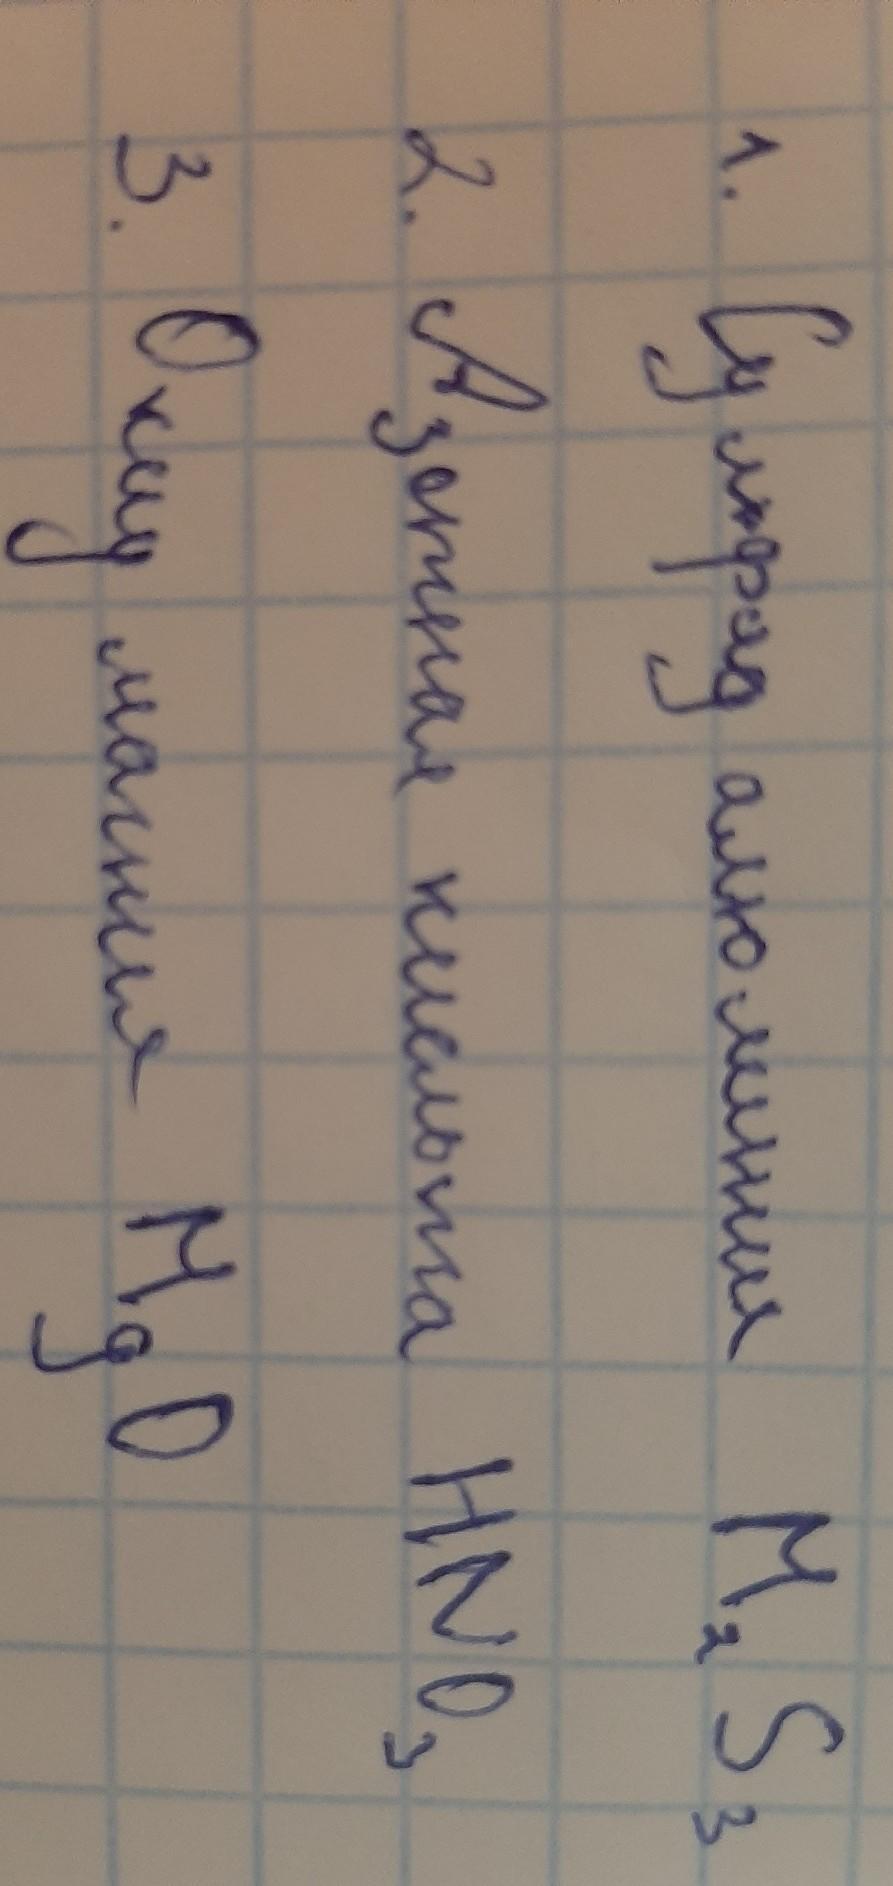 1. Сульфид алюминия M₂S₃
2. Азотная кислота HNO₃
3. Оксид магния MgO